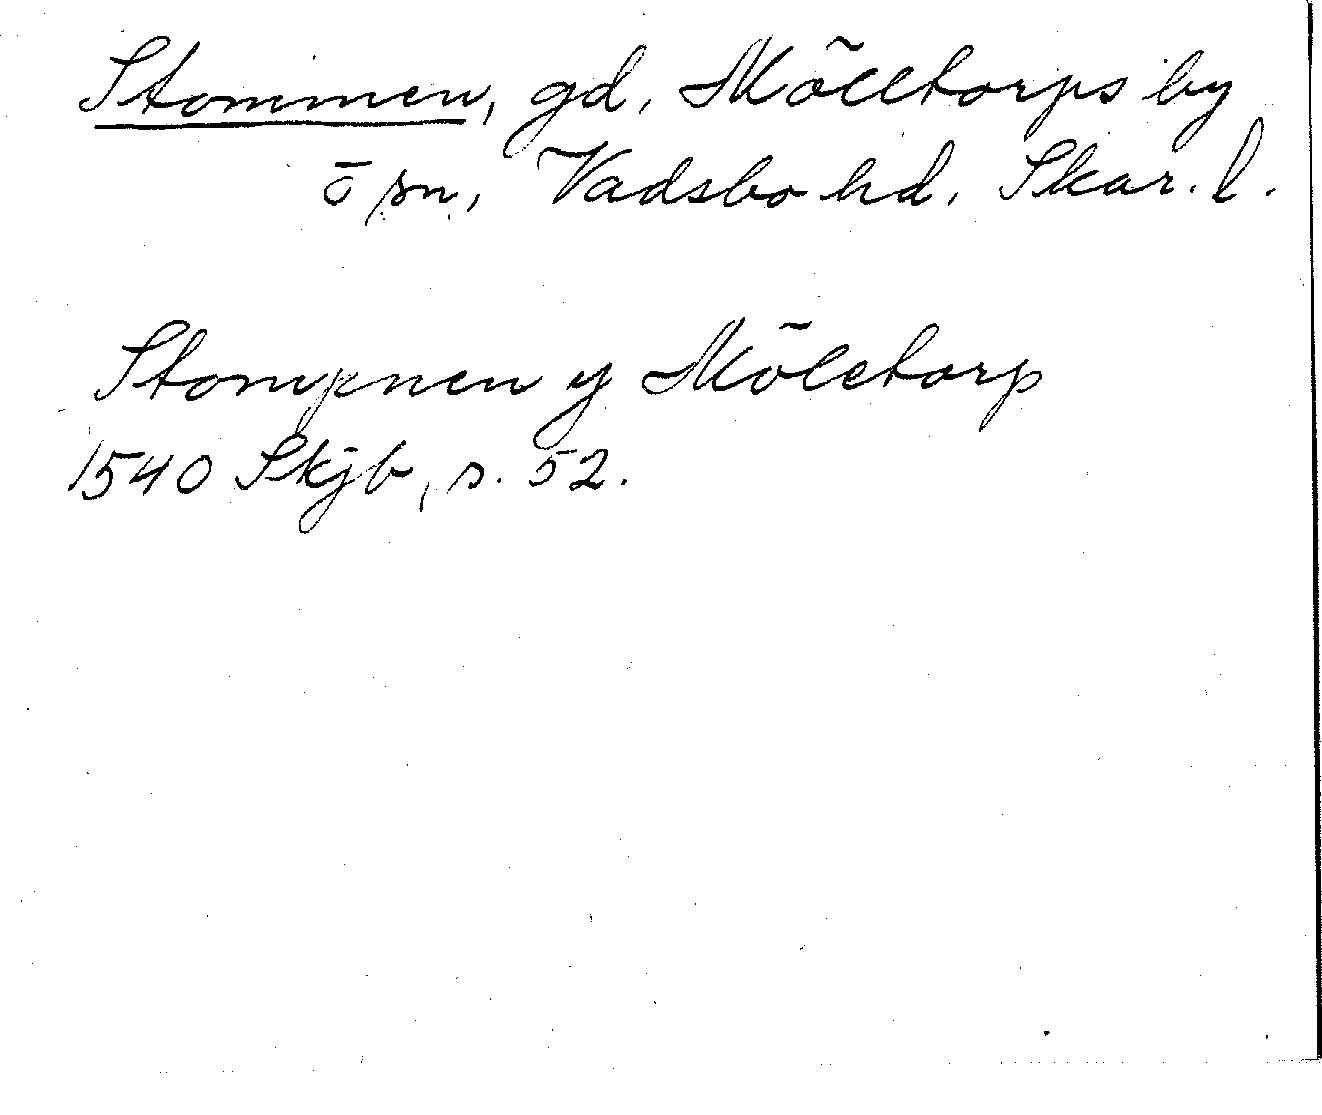 Stommen, gd, Mölltorps by
o sn, Vadsbo hd, Skar. l.
Stompnen y Möletorp
1540 Skjb, s. 52.